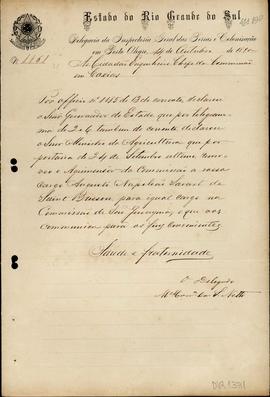 Estado do Rio Grande do Sul
Delegacia da Inspectoria Geral das Terras e Colonisação
em Porto Alegre, 14 de Outubro de 1890
Ao Cidadão Engenheiro Chefe da Commissão
em Caxias
Por officio nº 1185 de 13 do corrente declarou
o Snr Governador do Estado que por telegram-
ma de 2 e 6 tambem do corrente declarou
o Snr Ministro da Agricultura que por
portaria de 24 de Setembro ultimo remo-
veo o Agrimensor da Commissão a vosso
cargo Augusto Napoleão
Saint Brisson para igual cargo na
Commissão de São Jeronymo, o que vos
communico para os fins convenientes
Saude e fraternidade
O Delegado
Mel
DIR 1331